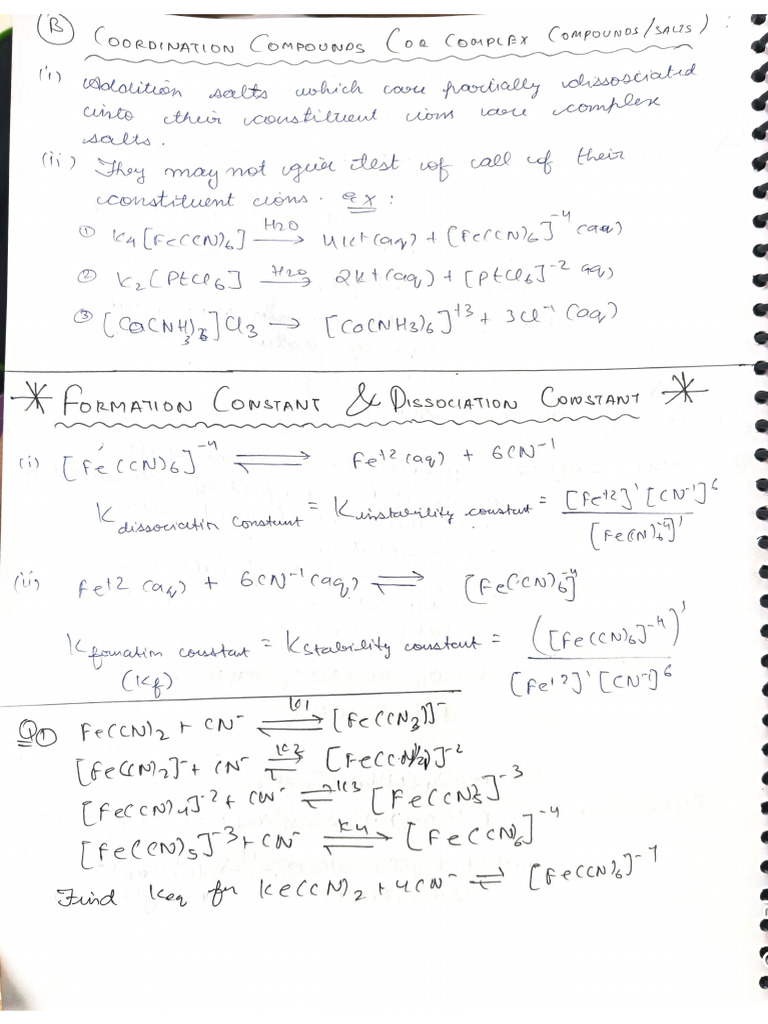 (B) COORDINATION COMPOUNDS (OR COMPLEX COMPOUNDS/SALTS) :
(i) Addition salts which are partially dissosciated
into their constituent ions are complex
salts.
(ii) They may not give test of all of their
constituent ions. ex :
① K4[Fe(CN)6] —H2O→ 4K+(aq) + [Fe(CN)6]^-4 (aq)
② K2[PtCl6] —H2O→ 2K+(aq) + [PtCl6]^-2 aq)
③ [Co(NH3)6]Cl3 → [Co(NH3)6]^+3 + 3Cl^-1 (aq)
* FORMATION CONSTANT & DISSOCIATION CONSTANT *
(i) [Fe(CN)6]^-4 ⇌ Fe^+2 (aq) + 6CN^-1
K dissociation constant = K instability constant = [Fe^+2]^1 [CN^-1]^6 / [Fe(CN)6^-4]^1
(ii) Fe^+2 (aq) + 6CN^-1 (aq) ⇌ [Fe(CN)6]^-4
K formation constant = K stability constant = ([Fe(CN)6]^-4)^1 / [Fe^+2]^1 [CN^-1]^6
(Kf)
Q① Fe(CN)2 + CN^- ⇌ K1 [Fe(CN3)]^-
[Fe(CN)2]^- + CN^- ⇌ K2 [Fe(CN)4]^-2
[Fe(CN)4]^-2 + CN^- ⇌ K3 [Fe(CN)5]^-3
[Fe(CN)5]^-3 + CN^- ⇌ K4 [Fe(CN)6]^-4
Find Keq for Ke(CN)2 + 4CN^- ⇌ [Fe(CN)6]^-4